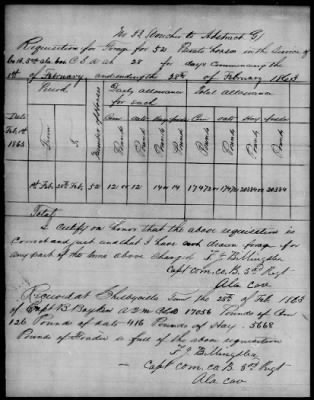 No 32 Voucher to Abstract G
Requisition for Forage for 52 Private horses in the Service of
Co. B. 3rd Ala Cav C.S.A at 28 for days Commencing the
1st of February and ending the 28th of February 1863
Date Period Number of horses Daily allowance for each Total allowance
From To Corn oats Hay fodder Corn oats Hay fodder
Pounds Pounds Pounds Pounds Pounds Pounds Pounds Pounds
Feb. 1st 1863
1st Feb. 28th Feb. 52 12 or 12 14 or 14 17472 or 17472 20384 or 20384
Total
I certify on honor that the above requisition is
correct and just and that I have not drawn forage for
any part of the time above charged F. J. Billingslea
Capt com. co. B. 3rd Regt
Ala cav
Received at Shelbyville Tenn the 28th of Feb 1863
of Capt B. A Q M 17056 Pounds of Corn
126 Pounds of oats 416 Pounds of Hay 5668
Pounds of Fodder in full of the above requisition
F. J. Billingslea
Capt com. co B 3rd Regt
Ala cav